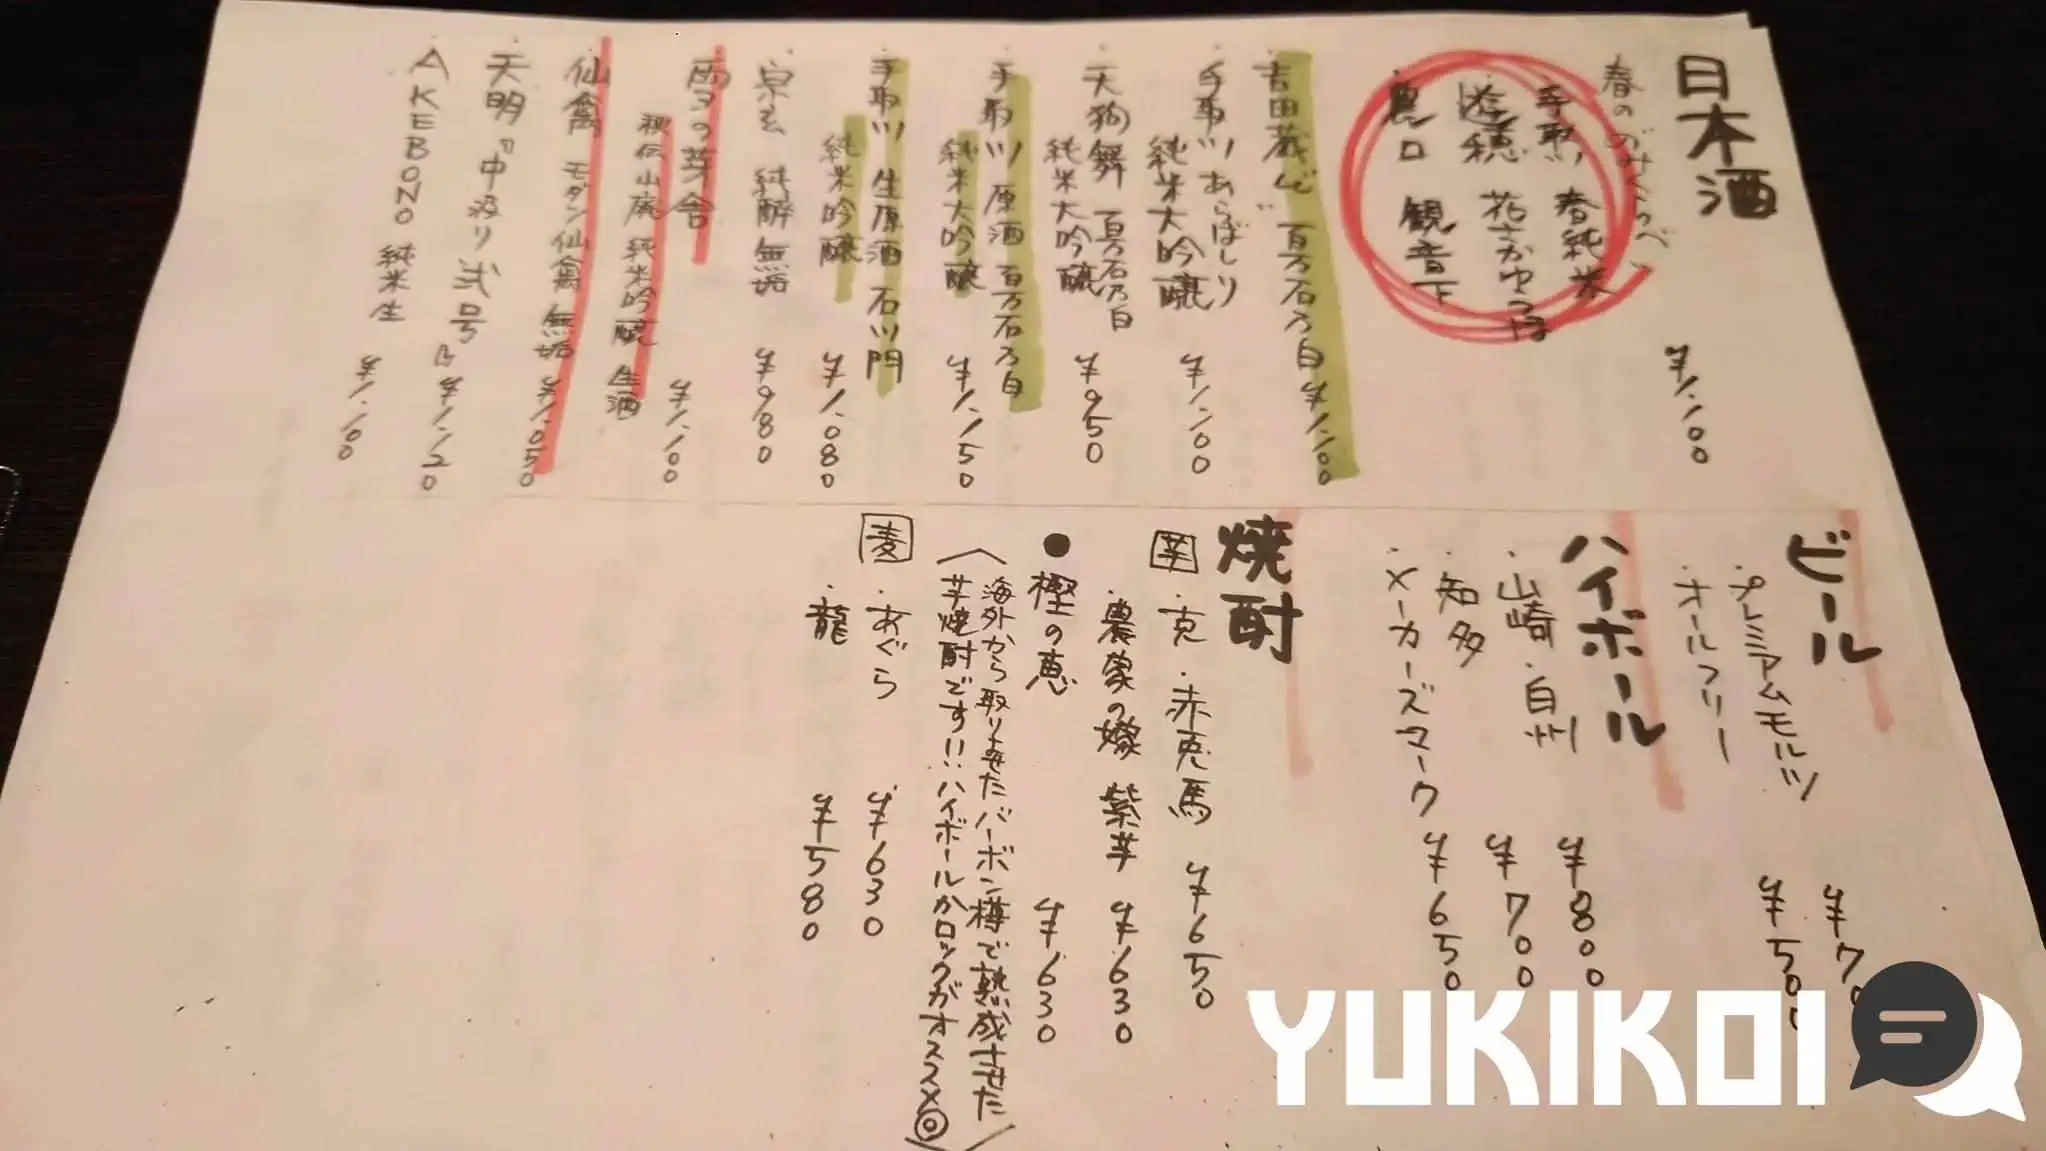 日本酒
春ののみくらべ ¥1,100
・手取川 春純米
・遊穂 花さかゆうほ
・農口 観音下
・吉田蔵u 百万石乃白 ¥1,100
・手取川 あらばしり
純米大吟醸 ¥1,100
・天狗舞 百万石乃白
純米大吟醸 ¥950
・手取川 原酒 百万石乃白
純米大吟醸 ¥1,150
・手取川 生原酒 石川門
純米吟醸 ¥1,080
・宗玄 純粋無垢 ¥980
・雨の芽舎
秘伝山廃 純米吟醸 生酒 ¥1,100
・仙禽 モダン仙禽 無垢 ¥1,050
・天明『中汲り弐号』 ¥1,120
・AKEBONO 純米生 ¥1,100
ビール
・プレミアムモルツ ¥70
・オールフリー ¥500
ハイボール
・山崎・白州 ¥800
・知多 ¥700
・メーカーズマーク ¥650
焼酎
芋 ・克・赤兎馬 ¥650
・農家の嫁 紫芋 ¥630
●樫の恵 ¥630
〈海外から取りよせたバーボン樽で熟成させた
芋焼酎です!!ハイボールかロックがオススメ◎〉
麦 ・あぐら ¥630
・龍 ¥580
YUKIKOI